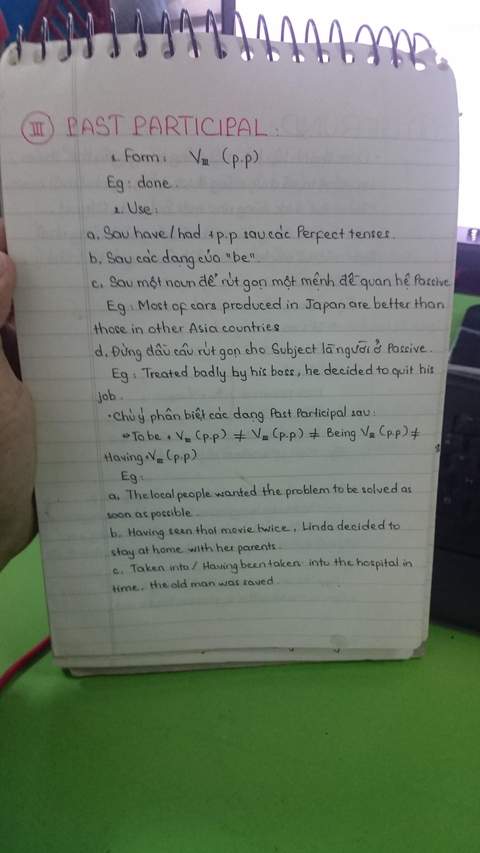 III PAST PARTICIPAL:
1. Form: VIII (p.p)
Eg: done.
2. Use:
a. Sau have/had + p.p sau các Perfect tenses.
b. Sau các dạng của "be".
c. Sau một noun để rút gọn một mệnh đề quan hệ Passive
Eg: Most of cars produced in Japan are better than
those in other Asia countries
d. Đứng đầu câu rút gọn cho Subject là người ở Passive.
Eg: Treated badly by his boss, he decided to quit his
job.
• Chú ý phân biệt các dạng Past Participal sau:
⇒ To be + VIII (p.p) ≠ VIII (p.p) ≠ Being VIII (p.p) ≠
Having + VIII (p.p)
Eg:
a. The local people wanted the problem to be solved as
soon as possible.
b. Having seen that movie twice, Linda decided to
stay at home with her parents.
c. Taken into / Having been taken into the hospital in
time, the old man was saved.